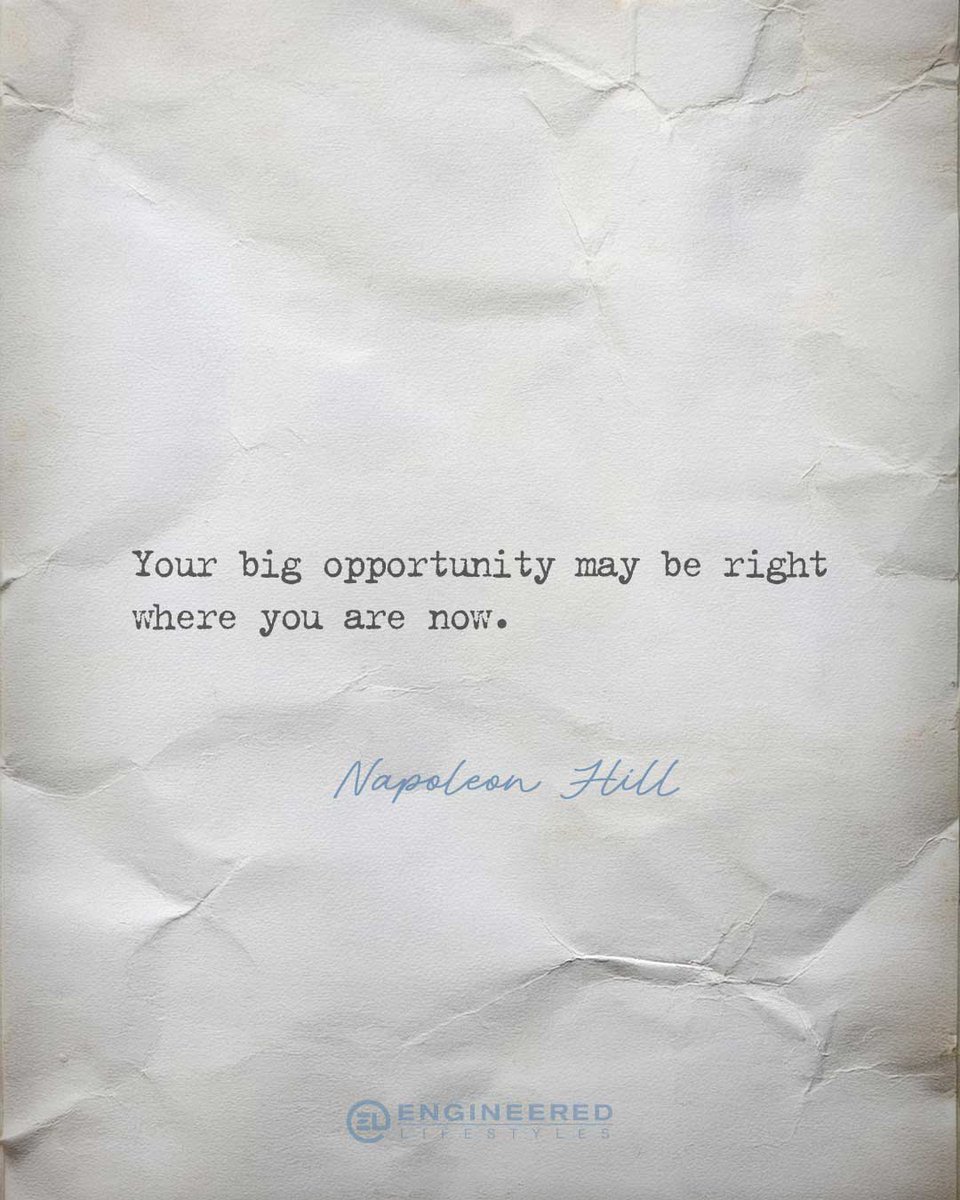 Your big opportunity may be right
where you are now.
Napoleon Hill
EL ENGINEERED
LIFESTYLES